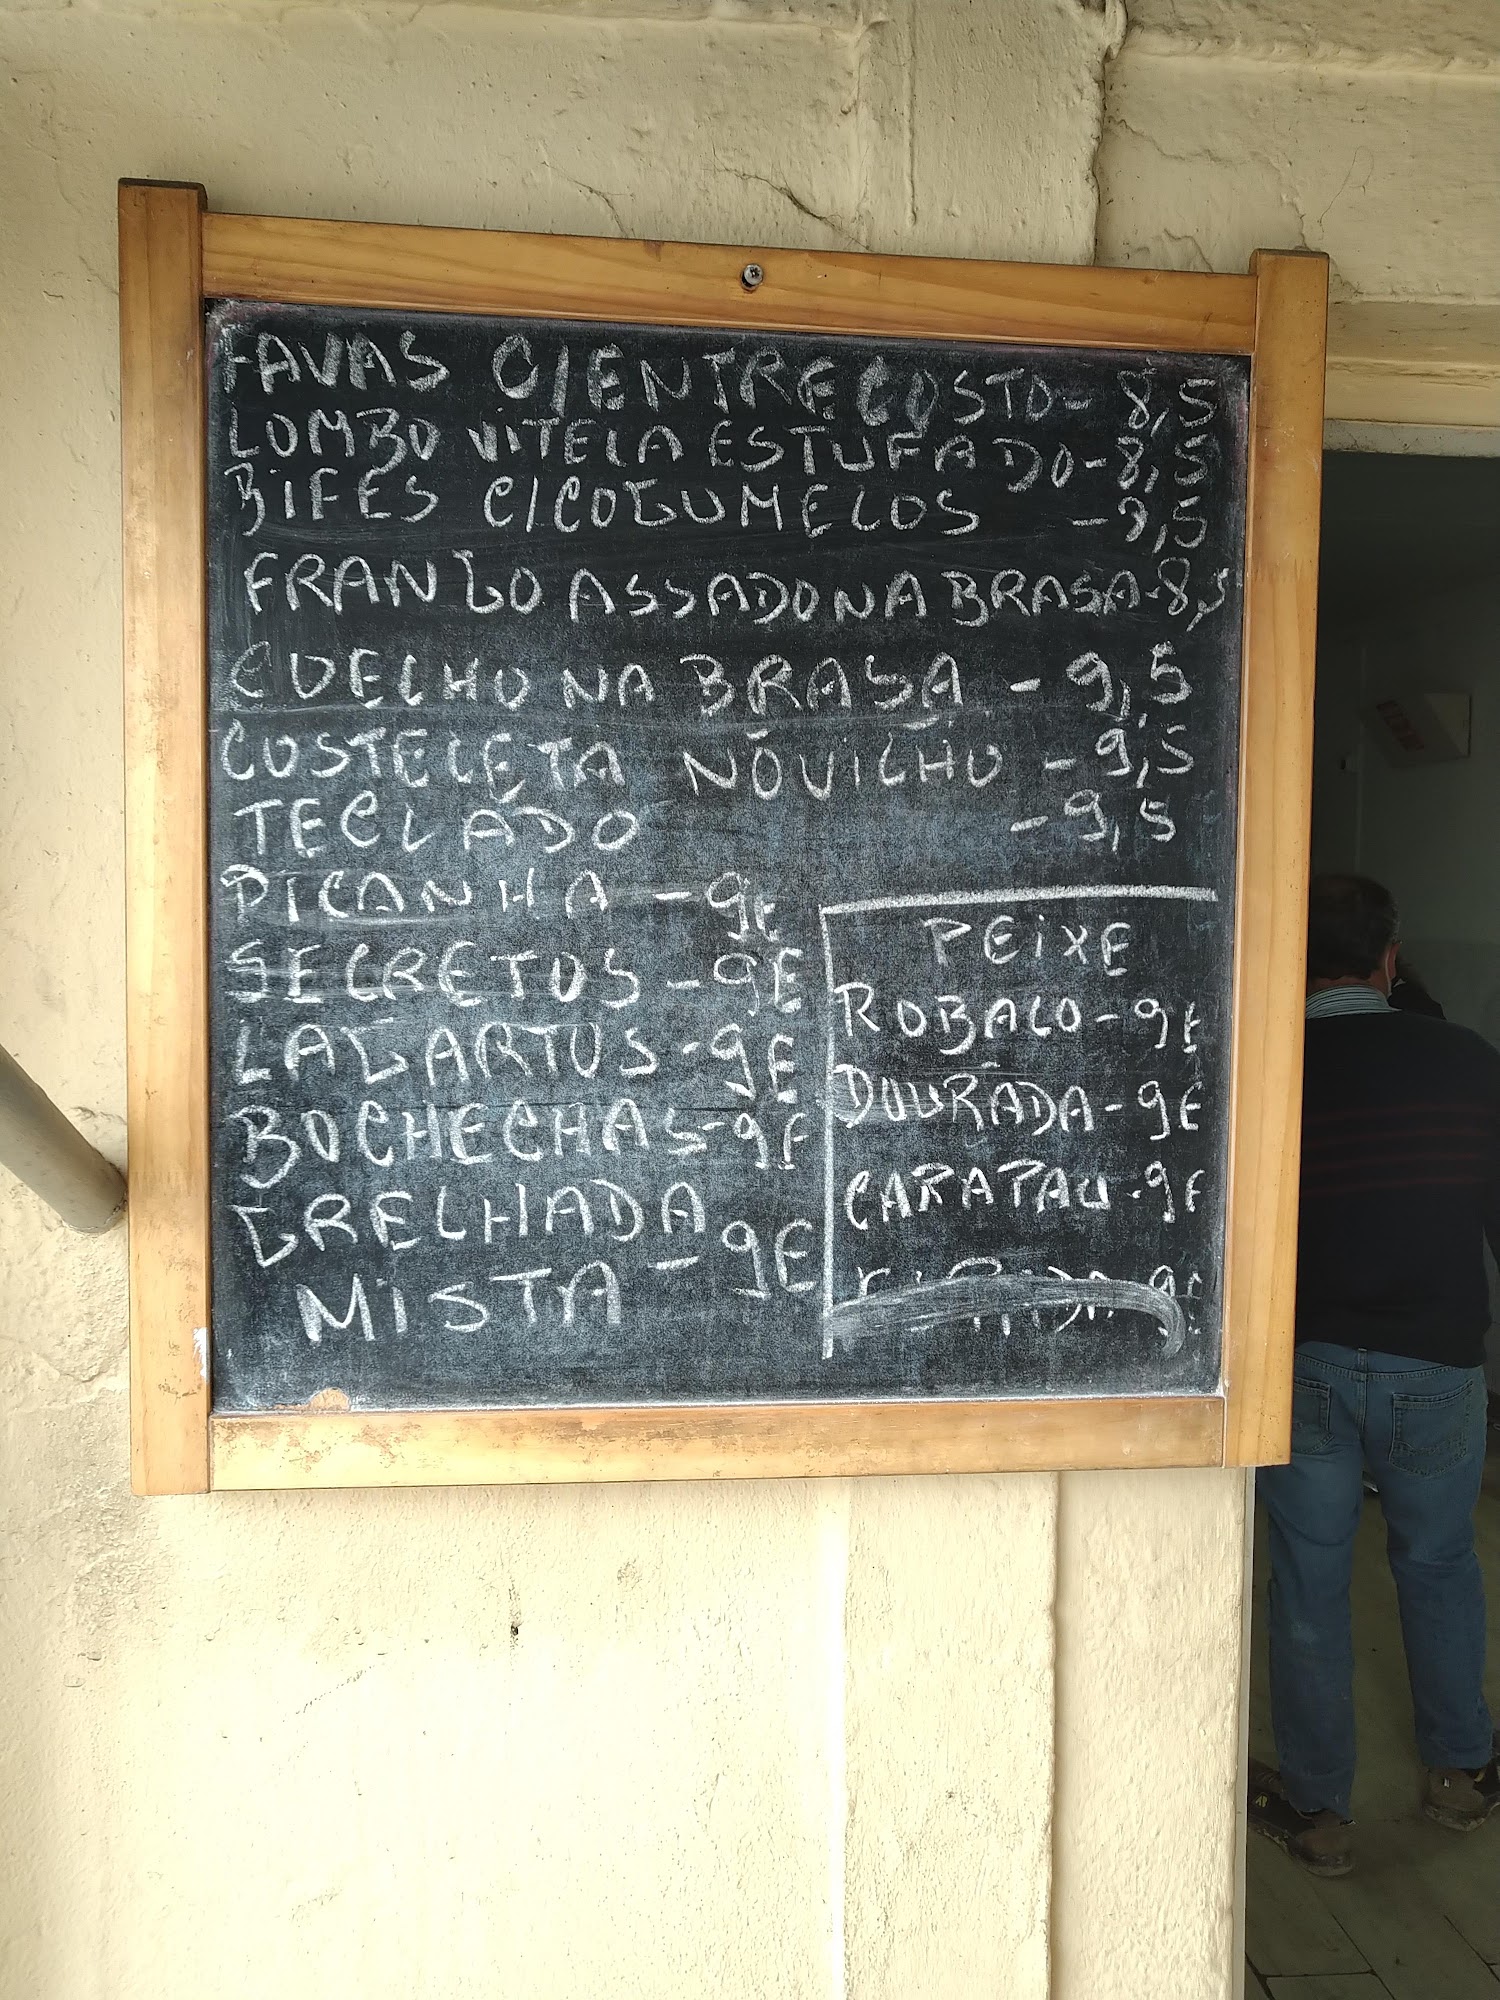 FAVAS C/ENTRECOSTO- 8,5
LOMBO VITELA ESTUFADO-8,5
BIFES C/COGUMELOS -8,5
FRANGO ASSADO NA BRASA-8,5
COELHO NA BRASA - 9,5
COSTELETA NOVILHO - 9,5
TECLADO - 9,5
PICANHA - 9€
SECRETOS - 9€
LAGARTOS - 9€
BOCHECHAS-9€
GRELHADA
MISTA - 9€
PEIXE
ROBALO-9€
DOURADA-9€
CARAPAU-9€
9€